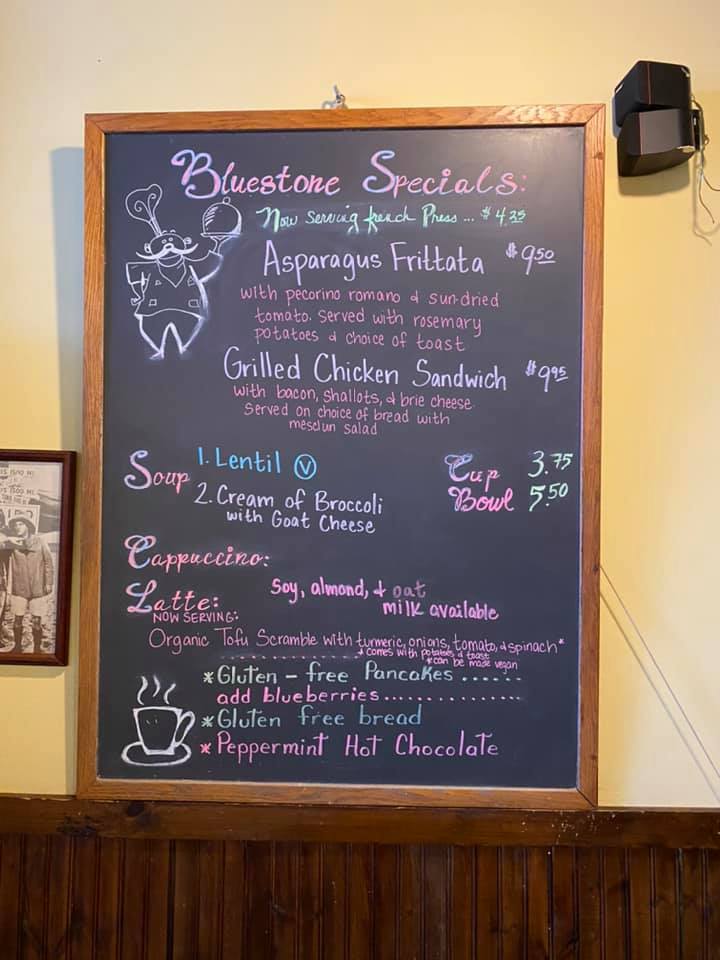 Bluestone Specials:
Now serving french Press ... $4.25
Asparagus Frittata $9.50
with pecorino romano & sun-dried
tomato. Served with rosemary
potatoes & choice of toast
Grilled Chicken Sandwich $9.95
with bacon, shallots, & brie cheese
Served on choice of bread with
mesclun salad
Soup 1. Lentil V
Cup 3.75
2. Cream of Broccoli
with Goat Cheese
Bowl 5.50
Cappuccino:
Latte: Soy, almond, & oat
milk available
NOW SERVING:
Organic Tofu Scramble with turmeric, onions, tomato, & spinach*
* comes with potatoes & toast
*can be made vegan
*Gluten-free Pancakes ......
add blueberries...............
*Gluten free bread
*Peppermint Hot Chocolate